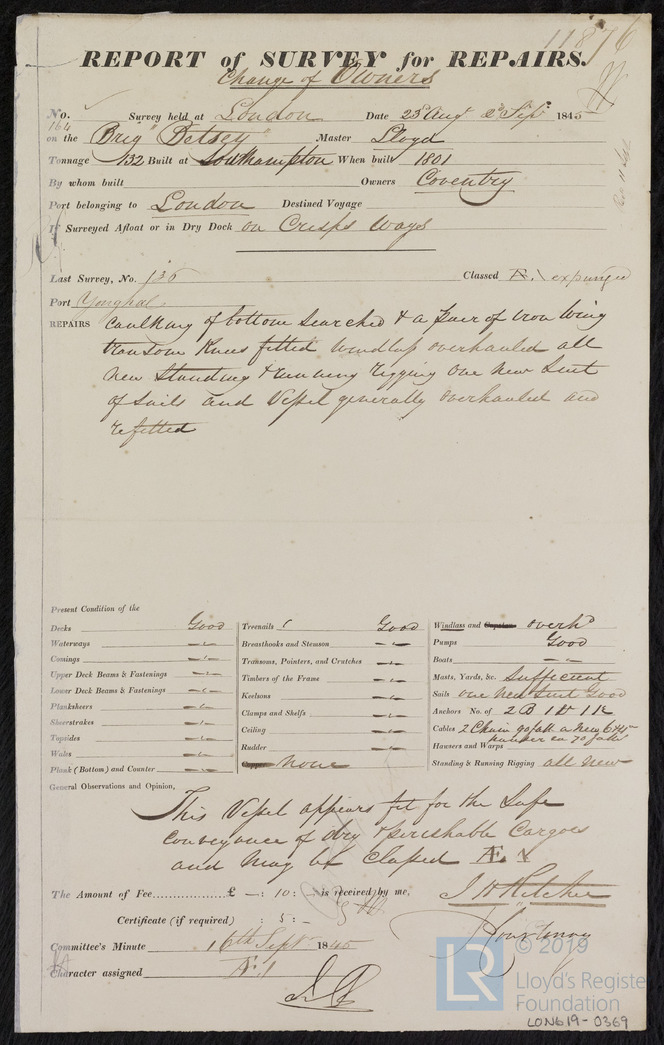 11876
REPORT of SURVEY for REPAIRS.
Change of Owners
No. 164 Survey held at London Date 23d Aug 2d Sepr. 1845
on the Brig "Betsey" Master Lloyd
Tonnage 132 Built at Southampton When built 1801
By whom built Owners Coventry
Port belonging to London Destined Voyage
If Surveyed Afloat or in Dry Dock on Crisps Ways
Last Survey, No. 136 Classed Æ.1 expunged
Port Youghal
REPAIRS Caulking of bottom searched & a pair of iron wing
transom Knees fitted windlass overhauled all
new Standing & running rigging one new Suit
of Sails and Vessel generally overhauled and
refitted
Present Condition of the
Decks Good
Waterways "
Comings "
Upper Deck Beams & Fastenings "
Lower Deck Beams & Fastenings "
Planksheers "
Sheerstrakes "
Topsides "
Wales "
Plank (Bottom) and Counter "
Treenails Good
Breasthooks and Stemson "
Transoms, Pointers, and Crutches "
Timbers of the Frame "
Keelsons "
Clamps and Shelfs "
Ceiling "
Rudder "
Copper none
Windlass and Capstan overhd
Pumps Good
Boats "
Masts, Yards, &c. Sufficient
Sails one new Suit Good
Anchors No. of 2 B 1 St 1 K
Cables 2 Chain 90 fath a new 6 & 5
hawser ea 90 fath
Hawsers and Warps
Standing & Running Rigging all new
General Observations and Opinion,
This Vessel appears fit for the Safe
Conveyance of dry & perishable Cargoes
and may be Classed Æ. 1
The Amount of Fee £ - : 10 : - is received by me,
J H Ritchie
Certificate (if required) : 5 : -
Courtenay
Committee's Minute 16th Septr 1845
Character assigned Æ 1
© 2019
LR
Lloyd's Register
Foundation
LON619-0369